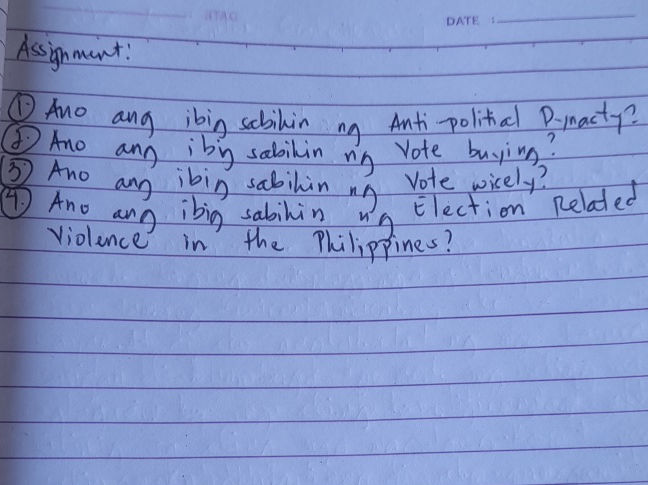 DATE :
Assignment:
① Ano ang ibig sabihin ng Anti-politial Dynacty?
② Ano ang ibig sabihin ng Vote buying?
③ Ano ang ibig sabihin ng Vote wicely?
④ Ano ang ibig sabihin ng Election Related
Violence in the Philippines?